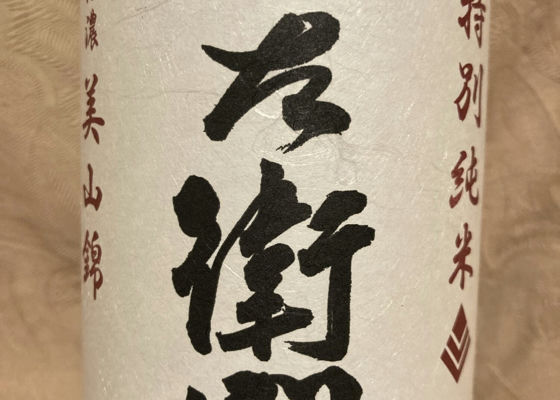 特別純米
右衛
濃 美山錦